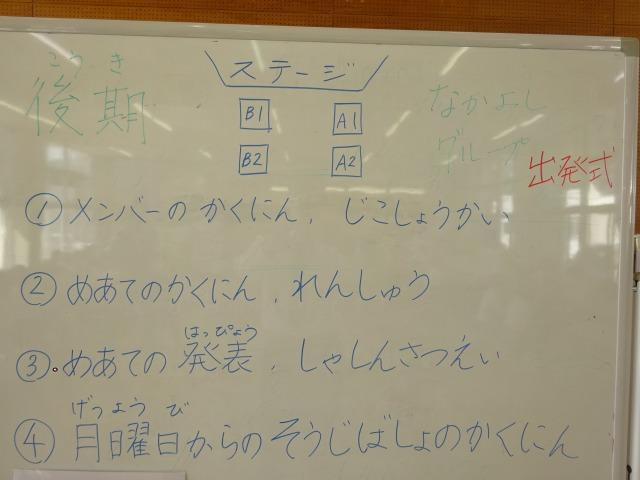 こうき
後期
ステージ
B1 A1
B2 A2
なかよし
グループ
出発式
① メンバーの かくにん、じこしょうかい
② めあてのかくにん、れんしゅう
はっぴょう
③ めあての 発表、しゃしんさつえい
げつようび
④ 月曜日からの そうじばしょのかくにん